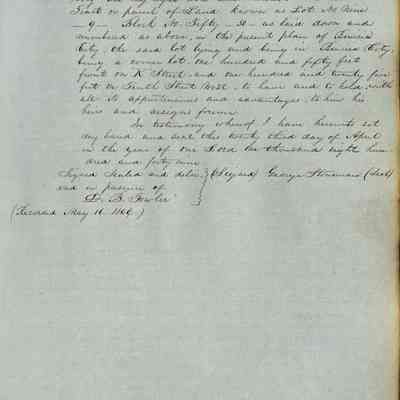 Tract or parcel of Land known as Lot No Nine
— 9 — Block No Fifty — 50 — as laid down and
numbered as above, in the present plan of Benicia
City, the said lot lying and being in Benicia City,
being a corner lot, one hundred and fifty feet
front on K Street, and one hundred and twenty five
feet on Tenth Street West, to have and to hold, with
all its appurtenances and advantages, to him his
heirs and assigns forever
In testimony whereof I have hereunto set
my hand and seal this twenty third day of April
in the year of our Lord One thousand eight hun
dred and forty nine
Signed Sealed and deliv } (Signed) George Stoneman (Seal)
ered in presence of
D. B. Fowler
(Received May 16. 1849.)